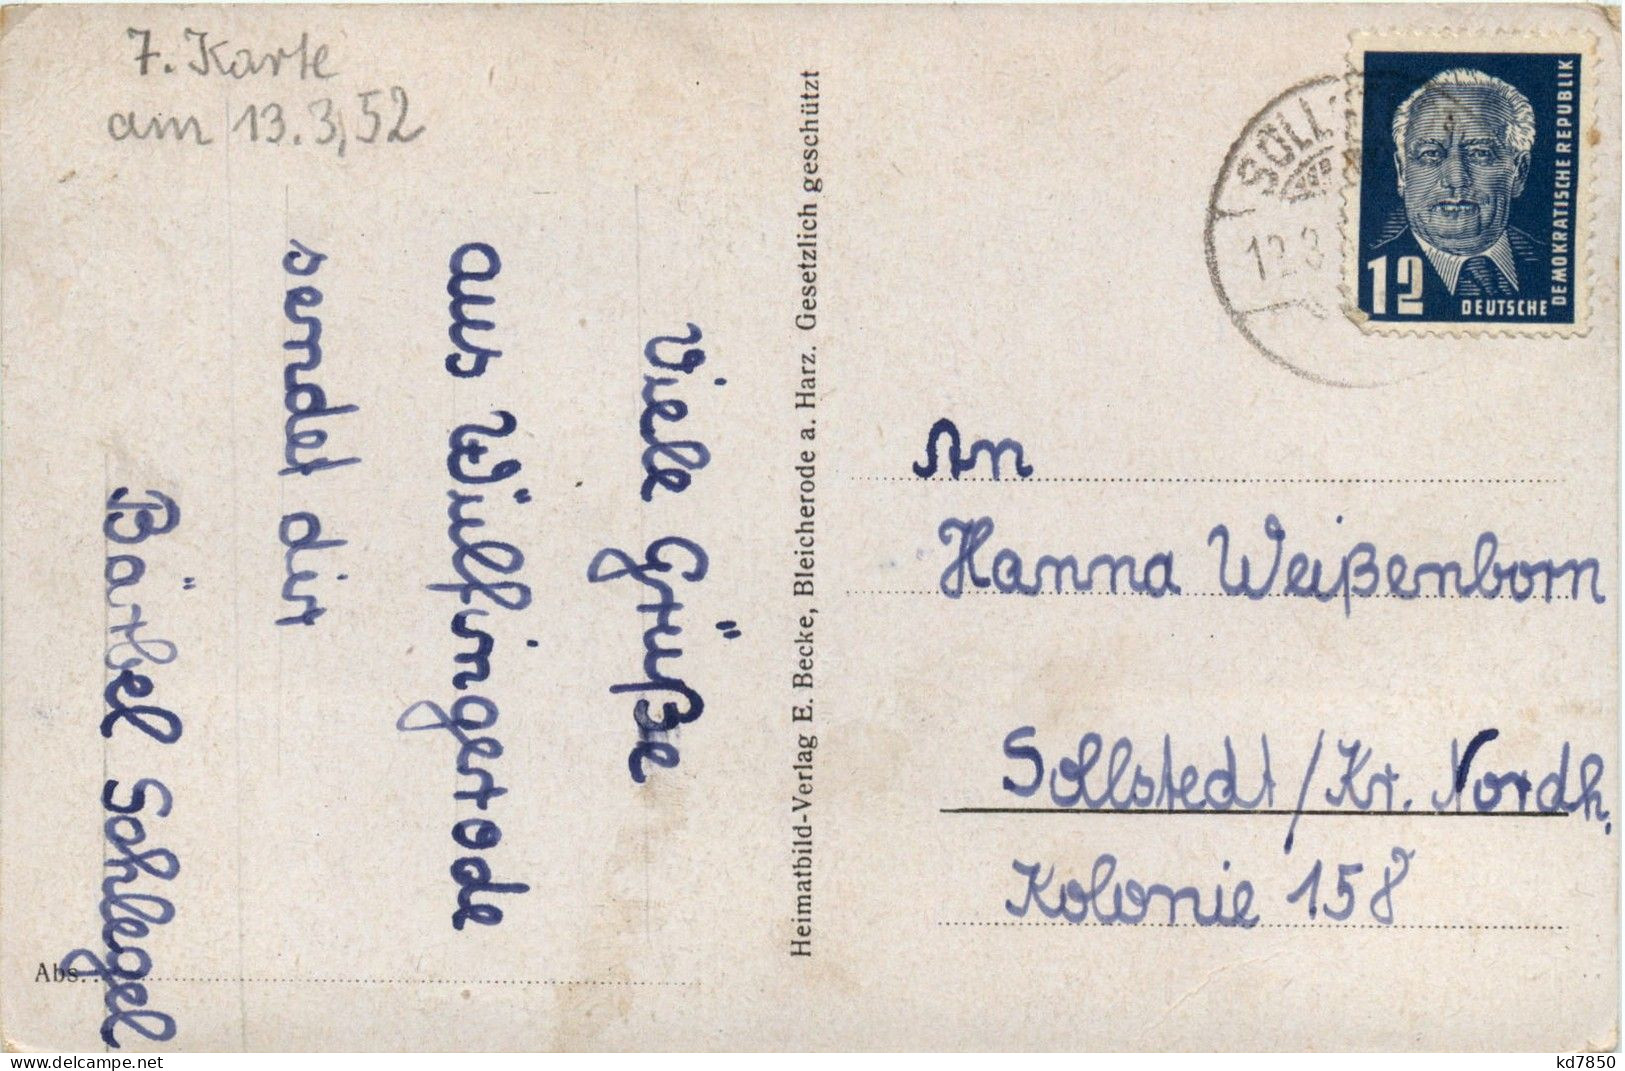 7. Karte
am 13.3,52
Viele Grüße
aus Wülfingerode
sendet dir
Bärbel Schlegel
Abs.
Heimatbild-Verlag E. Becke, Bleicherode a. Harz. Gesetzlich geschützt
SOLL
12.3
12
DEUTSCHE
DEMOKRATISCHE REPUBLIK
An
Hanna Weißenborn
Sollstedt/Kr. Nordh.
Kolonie 158
kd7850